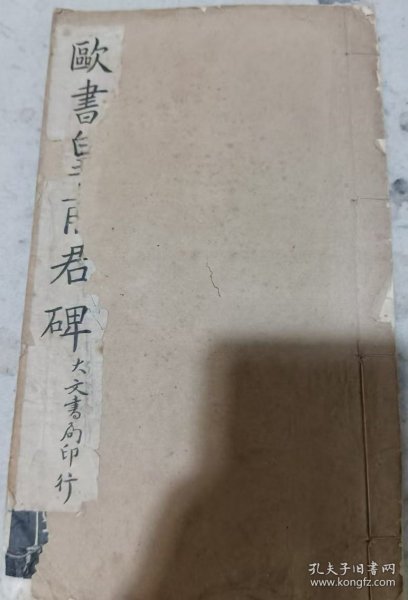 歐書皇甫君碑
大文書局印行
孔夫子旧书网
www.kongfz.com